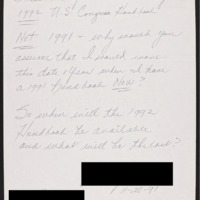 1992 U.S. Congress Handbook
Not 1991 - why would you
assume that I would want
this date & year when I have
a 1991 Handbook Now?
So when will the 1992
Handbook be available
and what will be the cost?